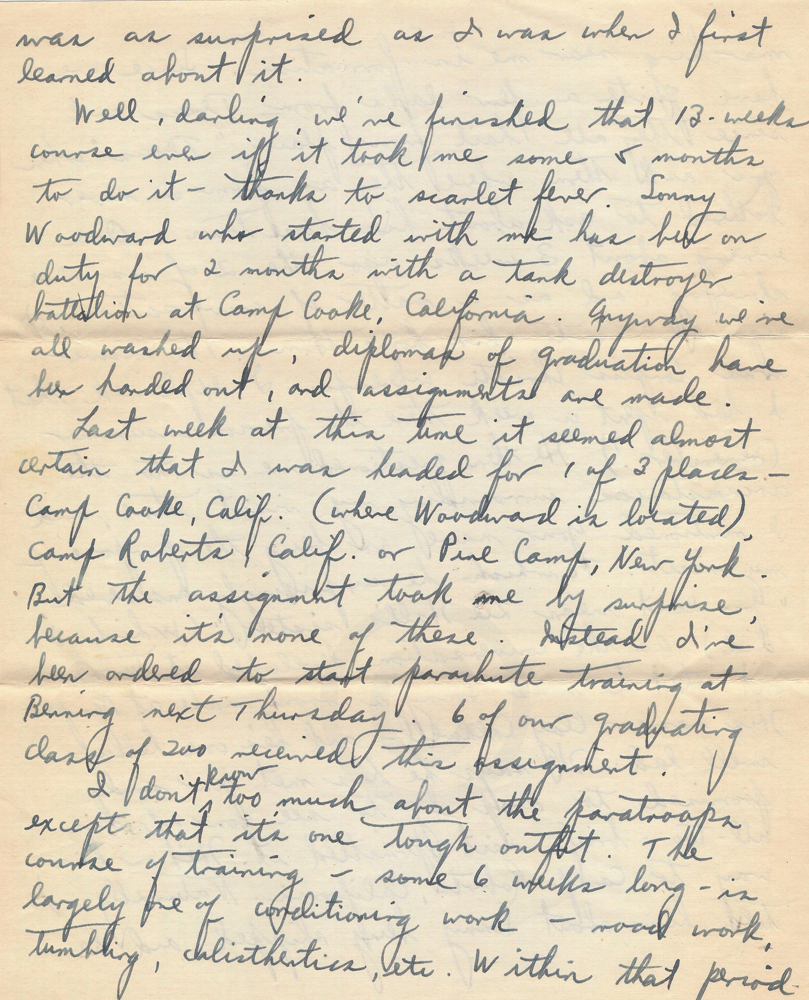 was as surprised as I was when I first
learned about it.
Well, darling, we've finished that 13-weeks
course even if it took me some 5 months
to do it - thanks to scarlet fever. Sonny
Woodward who started with me has been on
duty for 2 months with a tank destroyer
battalion at Camp Cooke, California. Anyway we've
all washed up, diplomas of graduation have
been handed out, and assignments are made.
Last week at this time it seemed almost
certain that I was headed for 1 of 3 places -
Camp Cooke, Calif. (where Woodward is located),
Camp Roberts, Calif. or Pine Camp, New York.
But the assignment took me by surprise,
because it's none of these. Instead I've
been ordered to start parachute training at
Benning next Thursday. 6 of our graduating
class of 200 received this assignment.
I don't know too much about the paratroops
except that it's one tough outfit. The
course of training - some 6 weeks long - is
largely one of conditioning work - road work,
tumbling, calisthentics, etc. Within that period